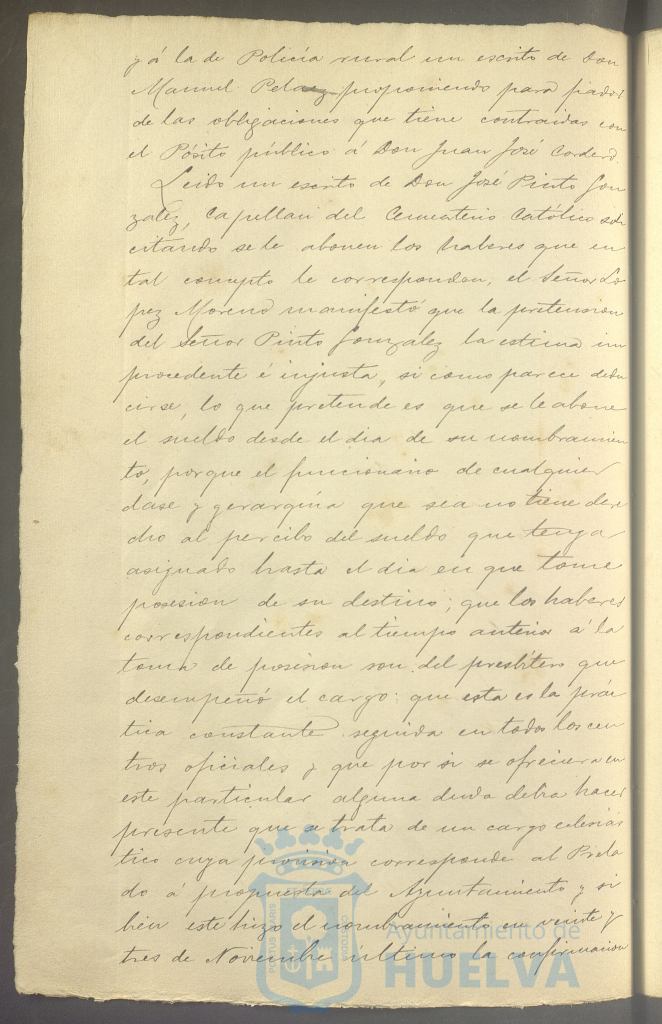 y á la de Policía rural un escrito de Don
Manuel Pelaez proponiendo para fiador
de las obligaciones que tiene contraidas con
el Pósito público á Don Juan José Cordero.
Leido un escrito de Don José Pinto Gon
zalez, Capellan del Cementerio Católico soli
citando se le abonen los haberes que en
tal concepto le correspondan, el Señor Lo
pez Moreno manifestó que la pretension
del Señor Pinto Gonzalez la estima im
procedente é injusta, si como parece dedu
cirse, lo que pretende es que se le abone
el sueldo desde el dia de su nombramien
to, porque el funcionario de cualquier
clase y gerarquia que sea no tiene dere
cho al percibo del sueldo que tenga
asignado hasta el dia en que tome
posesion de su destino; que los haberes
correspondientes al tiempo anterior á la
toma de posesion son del presbítero que
desempeñó el cargo: que esta es la prác
tica constante seguida en todos los cen
tros oficiales y que por si se ofreciera en
este particular alguna duda debia hacer
presente que se trata de un cargo eclesiás
tico cuya provision corresponde al Prela
do á propuesta del Ayuntamiento y si
bien este hizo el nombramiento en veinte y
tres de Noviembre último la confirmacion
Ayuntamiento de
HUELVA
PORTUS MARIS
CUSTODIA